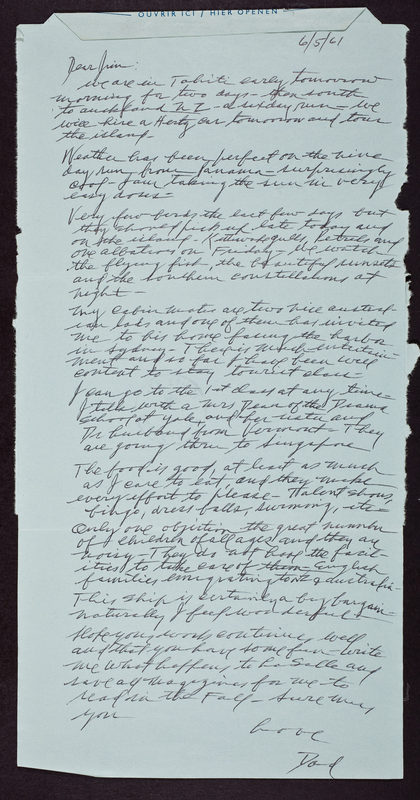 OUVRIR ICI / HIER OPENEN
6/5/61
Dear Jim:
We are in Tahiti early tomorrow
morning for two days - then south
to Auckland N Z - a six day run - We
will hire a Hertz car tomorrow and tour
the island -
Weather has been perfect on the nine
day run from Panama - surprisingly
cool - I am taking the sun in very
easy doses -
Very few birds the last few days but
they should pick up late today and
on the island - gulls, petrels and
one albatross on Friday - We watch
the flying fish, the beautiful sunsets
and the southern constellations at
night -
My cabin mates are two nice Austral-
ian lads and one of them has invited
me to his home facing the harbor
in Sydney - There is much entertain-
ment and so far I have been well
content to stay tourist class -
I can go to the 1st class at any time -
I talk with a Mrs Dean of the Drama
School at Yale, and her sister and
Dr husband from Vermont - They
are going thru to Singapore
The food is good, at least as much
as I care to eat, and they make
every effort to please - Talent shows,
bingo, dress balls, swimming, etc -
Only one objection the great number
of children of all ages and they are
noisy - They do all have the facil-
ities to take care of them - English
families emigrating to NZ & Australia -
This ship is certainly a big bargain -
Naturally I feel wonderful -
Hope your work continues well
and that you have some fun - Write
me what happens to La Salle and
save all magazines for me to
read in the Fall - Sure miss
you -
Love
Dad